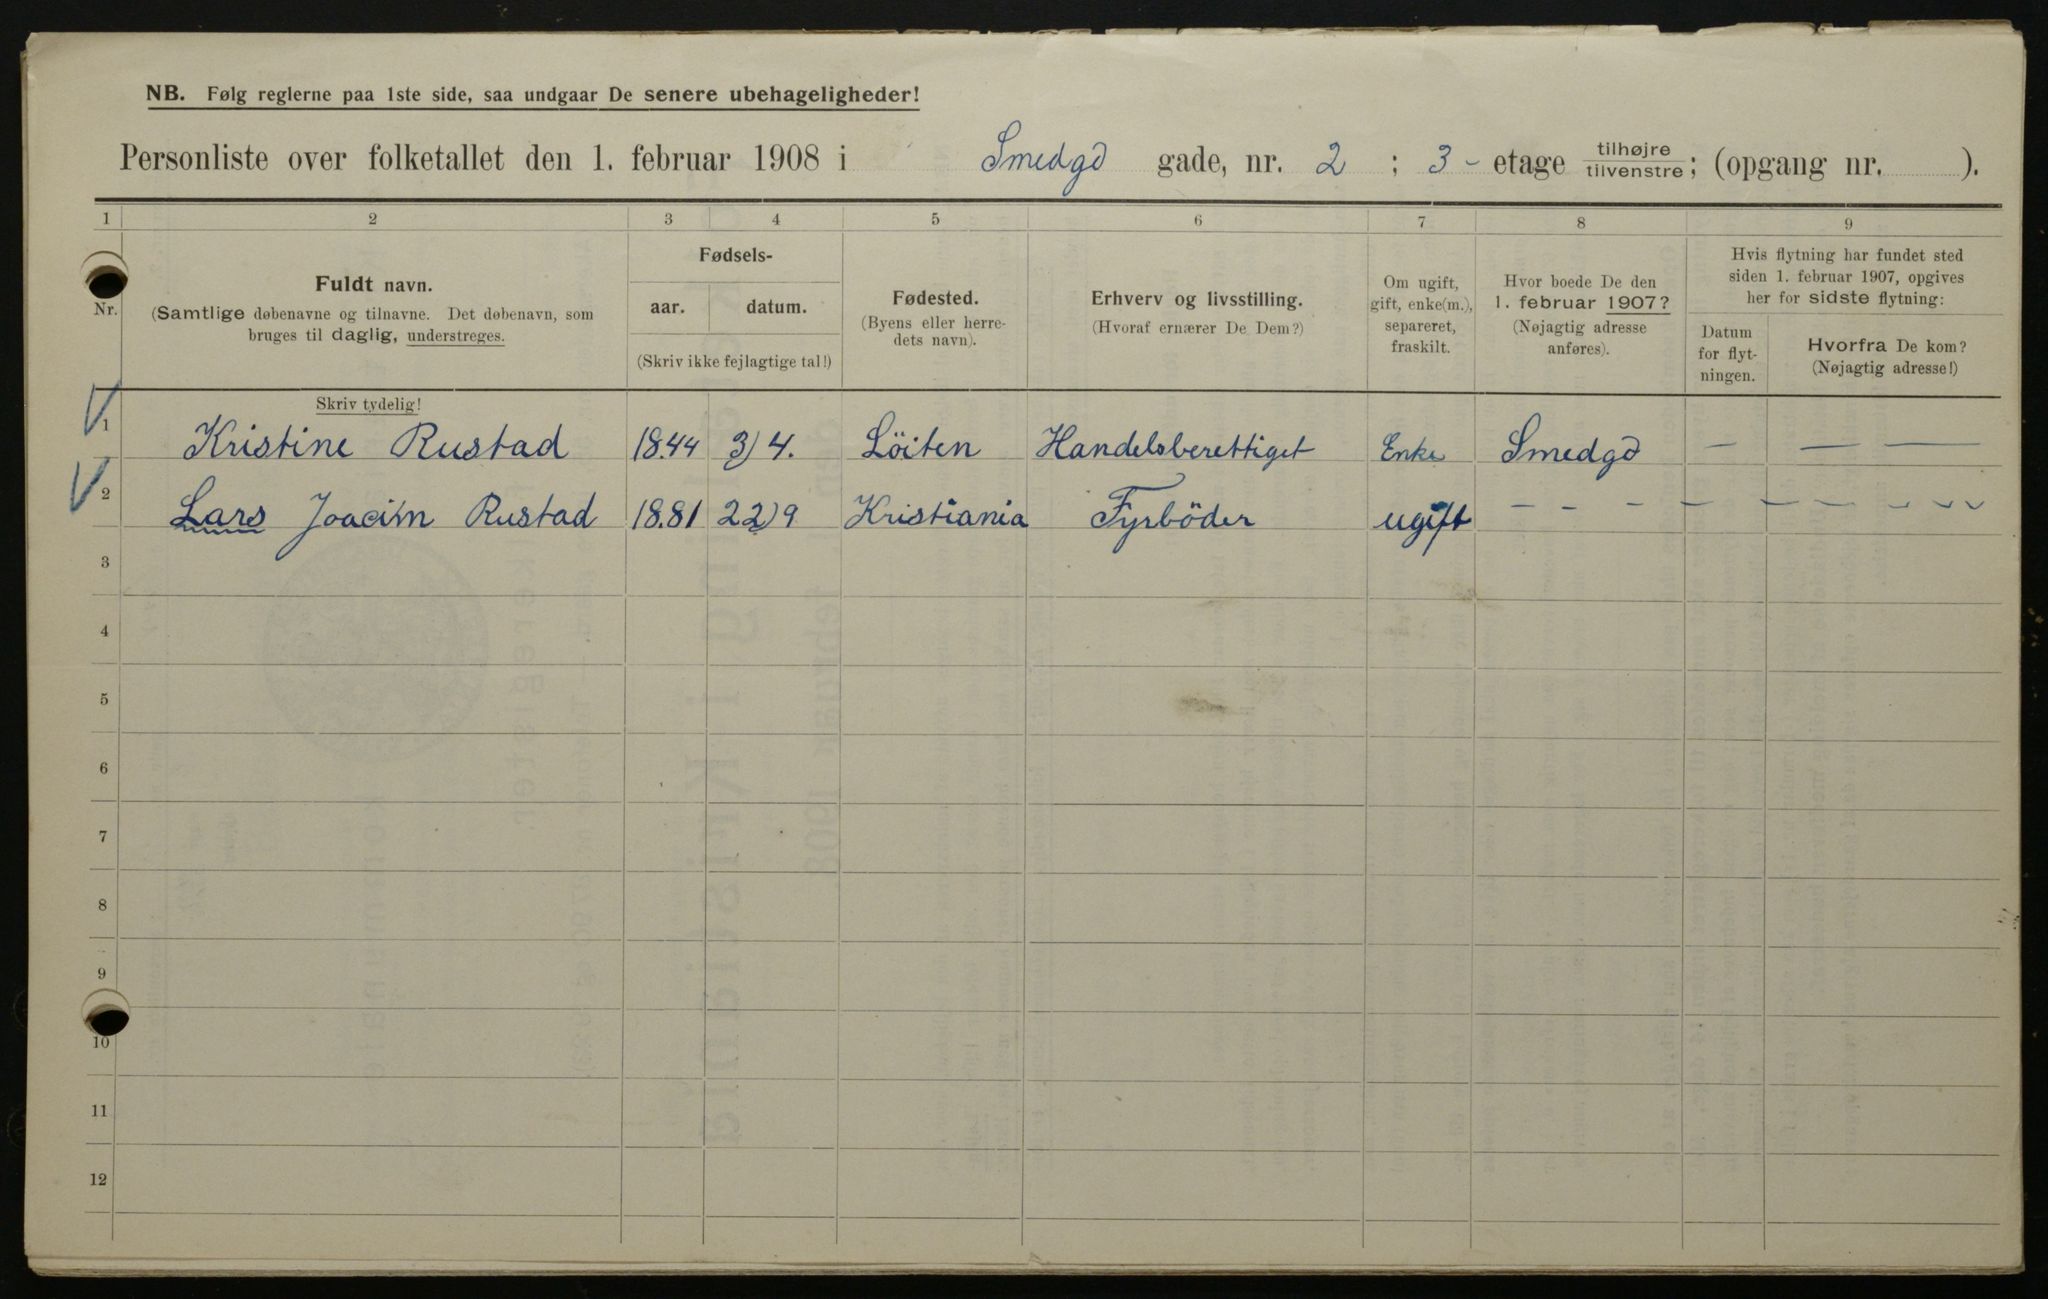 NB. Følg reglerne paa 1ste side, saa undgaar De senere ubehageligheder!
Personliste over folketallet den 1. februar 1908 i Smedgd gade, nr. 2 ; 3 - etage tilhøjre/tilvenstre; (opgang nr. ).
1 2 3 4 5 6 7 8 9
Nr.
Fuldt navn.
(Samtlige døbenavne og tilnavne. Det døbenavn, som
bruges til daglig, understreges.
Skriv tydelig!
Fødsels-
aar. datum.
(Skriv ikke fejlagtige tal!)
Fødested.
(Byens eller herre-
dets navn).
Erhverv og livsstilling.
(Hvoraf ernærer De Dem?)
Om ugift,
gift, enke(m.),
separeret,
fraskilt.
Hvor boede De den
1. februar 1907?
(Nøjagtig adresse
anføres).
Hvis flytning har fundet sted
siden 1. februar 1907, opgives
her for sidste flytning:
Datum
for flyt-
ningen.
Hvorfra De kom?
(Nøjagtig adresse!)
1 Kristine Rustad 18.44 3/4. Löiten Handelsberettiget Enke Smedgd — — —
2 Lars Joacim Rustad 18.81 22/9 Kristiania Fyrböder ugift - - - - - - - - - -
3
4
5
6
7
8
9
10
11
12